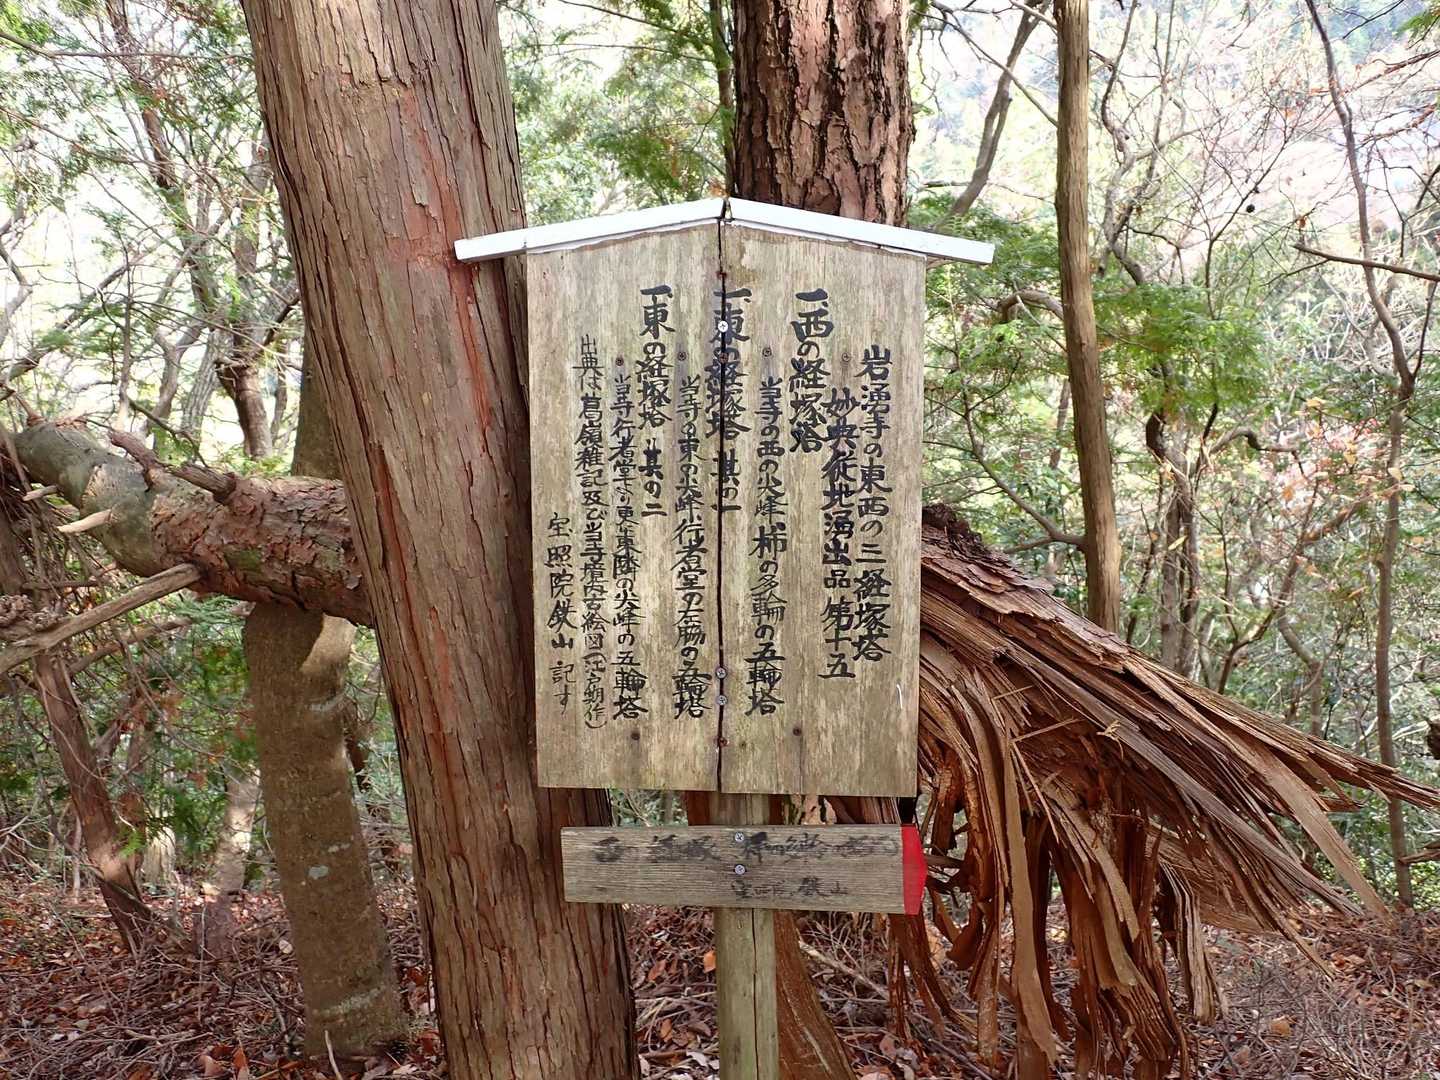 岩湧寺の東西の三経塚塔
妙典従地湧出品第十五
一、西の経塚塔
当寺の西の尖峰 柿の多輪の五輪塔
一、東の経塚塔 其の一
当寺の東の尖峰行者堂の左脇の五輪塔
一、東の経塚塔 其の二
当寺行者堂の東東隣の尖峰の五輪塔
出典は葛嶺雑記及び当寺境内古絵図(江戸期作)
宝照院鉄山 記す
鉄山